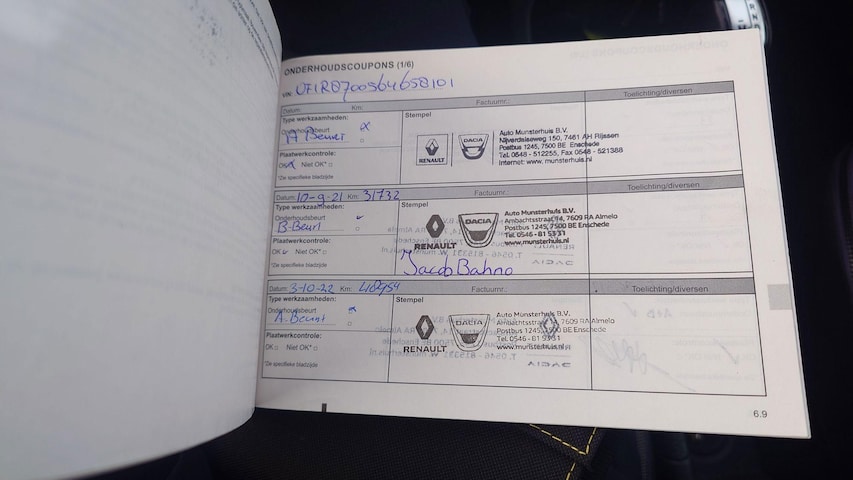 ONDERHOUDSCOUPONS (1/6)
VIN: UF1RB700564658101
Datum: Km: Factuurnr.: Toelichting/diversen
Type werkzaamheden: Stempel
Onderhoudsbeurt
A Beurt
Plaatwerkcontrole:
OK Niet OK*
*Zie specifieke bladzijde
RENAULT DACIA
Auto Munsterhuis B.V.
Nijverdalseweg 150, 7461 AH Rijssen
Postbus 1245, 7500 BE Enschede
Tel. 0548 - 512255, Fax 0548 - 521388
Internet: www.munsterhuis.nl
Datum: 10-9-21 Km: 31732 Factuurnr.: Toelichting/diversen
Type werkzaamheden: Stempel
Onderhoudsbeurt
B-Beurt
Plaatwerkcontrole:
OK Niet OK*
*Zie specifieke bladzijde
RENAULT DACIA
Auto Munsterhuis B.V.
Ambachtsstraat 14, 7609 RA Almelo
Postbus 1245, 7500 BE Enschede
Tel. 0546 - 81 53 31
www.munsterhuis.nl
Jacob Bahno
Datum: 3-10-22 Km: Factuurnr.: Toelichting/diversen
Type werkzaamheden: Stempel
Onderhoudsbeurt
A. Beurt
Plaatwerkcontrole:
OK Niet OK*
*Zie specifieke bladzijde
RENAULT DACIA
Auto Munsterhuis B.V.
Ambachtsstraat 7609 RA Almelo
Postbus 1245, 7500 BE Enschede
Tel. 0546 - 81 53 31
www.munsterhuis.nl
6.9